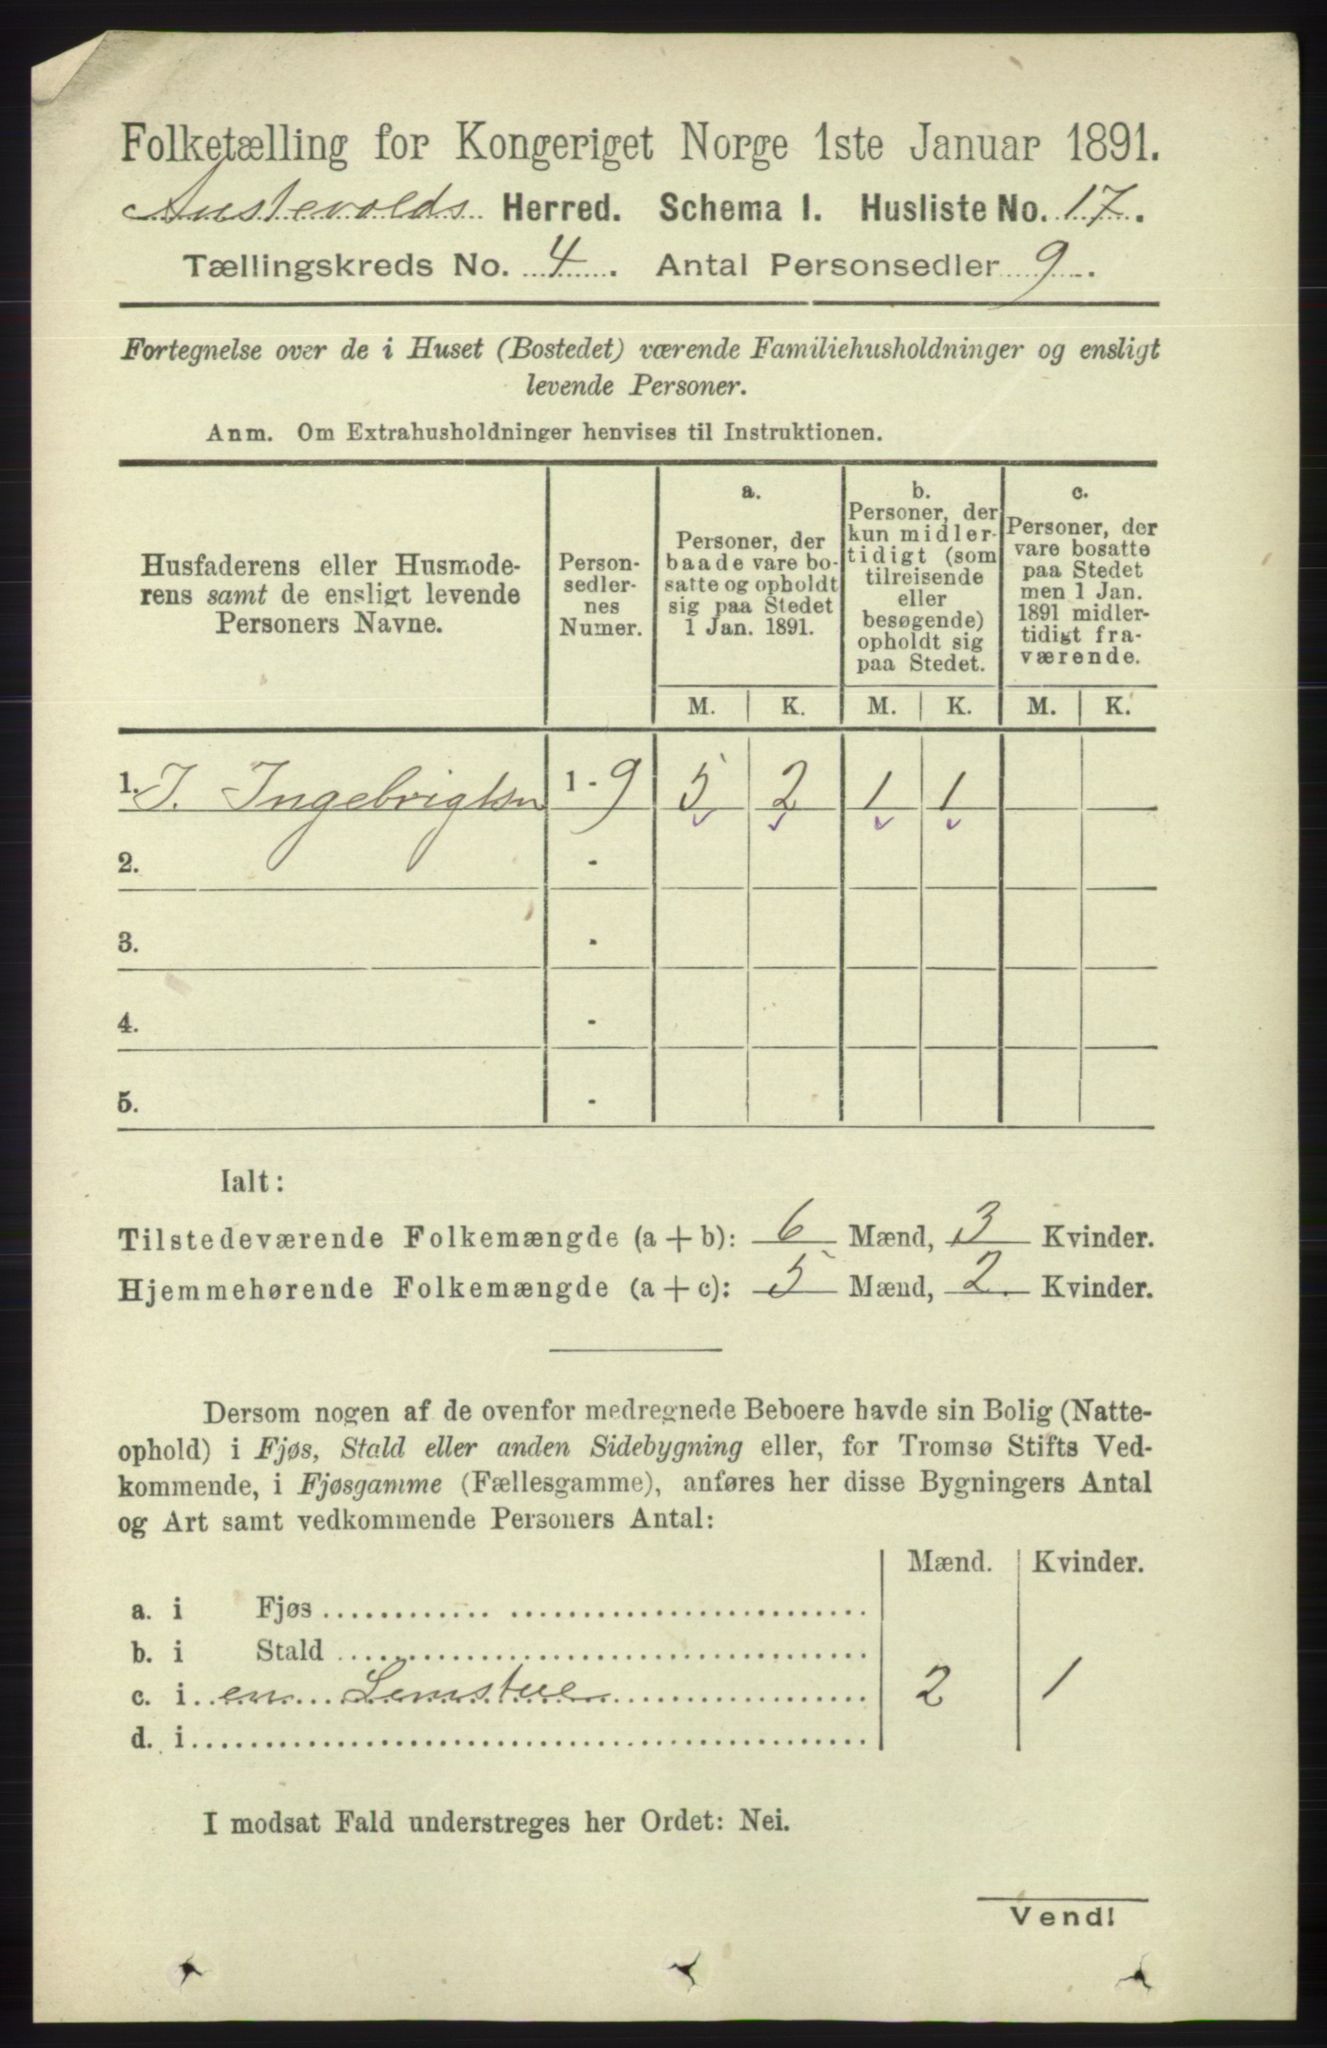 Folketælling for Kongeriget Norge 1ste Januar 1891.
Austevolds Herred. Schema I. Husliste No. 17.
Tællingskreds No. 4. Antal Personsedler 9.
Fortegnelse over de i Huset (Bostedet) værende Familiehusholdninger og ensligt
levende Personer.
Anm. Om Extrahusholdninger henvises til Instruktionen.
Husfaderens eller Husmode-
rens samt de ensligt levende
Personers Navne.
Person-
sedler-
nes
Numer.
a.
Personer, der
baade vare bo-
satte og opholdt
sig paa Stedet
1 Jan. 1891.
b.
Personer, der
kun midler-
tidigt (som
tilreisende
eller
besøgende)
opholdt sig
paa Stedet.
c.
Personer, der
vare bosatte
paa Stedet
men 1 Jan.
1891 midler-
tidigt fra-
værende.
M. K. M. K. M. K.
1. J. Ingebrigtsen 1 - 9 5 2 1 1
2. -
3. -
4. -
5. -
Ialt:
Tilstedeværende Folkemængde (a + b): 6 Mænd, 3 Kvinder.
Hjemmehørende Folkemængde (a + c): 5 Mænd, 2 Kvinder.
Dersom nogen af de ovenfor medregnede Beboere havde sin Bolig (Natte-
ophold) i Fjøs, Stald eller anden Sidebygning eller, for Tromsø Stifts Ved-
kommende, i Fjøsgamme (Fællesgamme), anføres her disse Bygningers Antal
og Art samt vedkommende Personers Antal:
Mænd. Kvinder.
a. i Fjøs
b. i Stald
c. i en 2 1
d. i
I modsat Fald understreges her Ordet: Nei.
Vend!